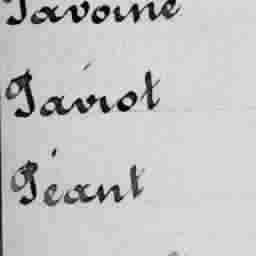 Pavoine
Paviot
Péant